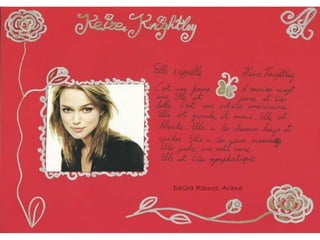 Keira Knightley
Elle s'appelle Keira Knightley
C'est une femme
vingt
ans. Elle est jeune et très
belle. C'est une actrice américaine.
Elle est grande et mince. Elle est
blonde. Elle a les cheveux longs et
raides. Elle a les yeux
Elle porte une veste noire
Elle est très symphatique
Dasha Ramos Arana